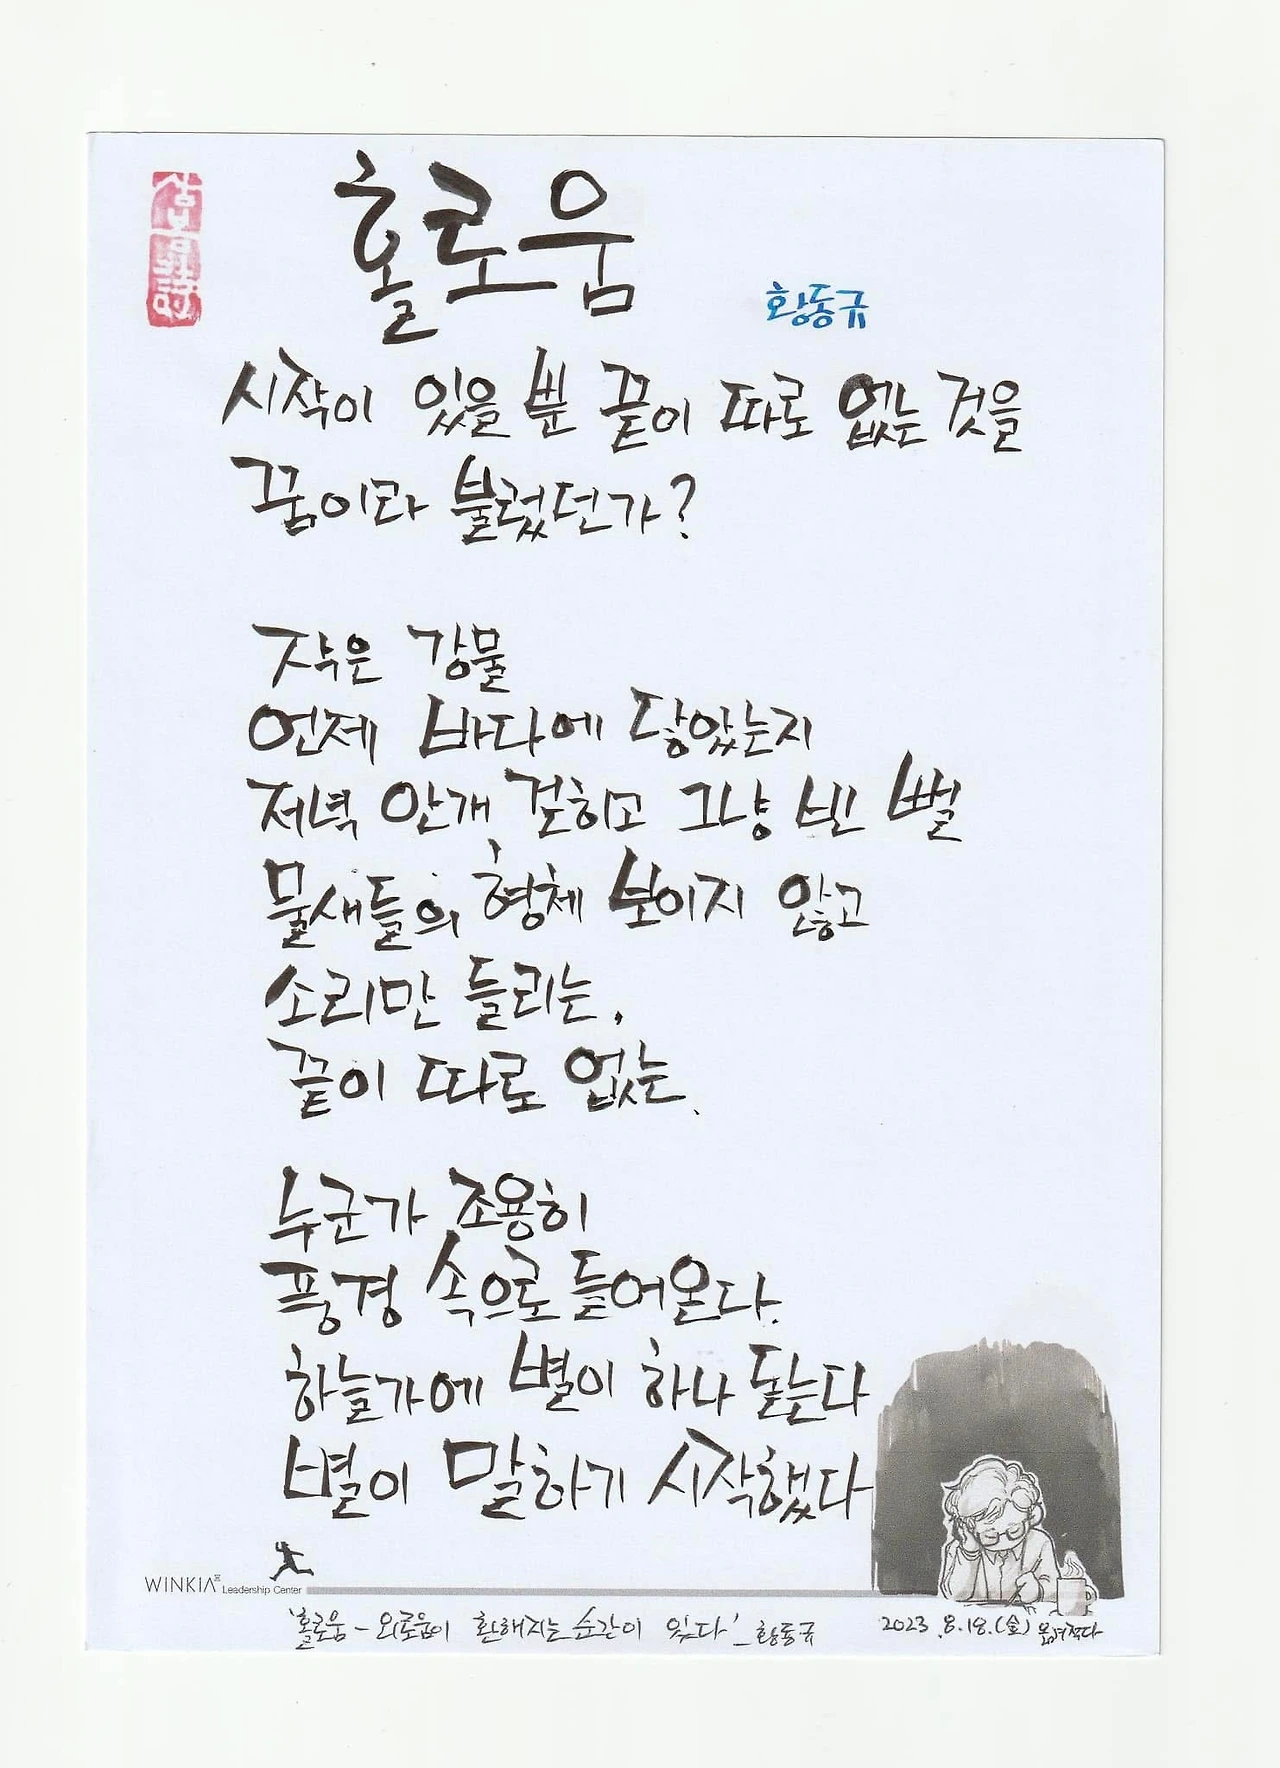 홀로움
황동규
시작이 있을 뿐 끝이 따로 없는 것을
꿈이라 불렀던가?
작은 강물
언제 바다에 닿았는지
저녁 안개 걷히고 그냥 빈 뻘
물새들의 형체 보이지 않고
소리만 들리는,
끝이 따로 없는.
누군가 조용히
풍경 속으로 들어온다.
하늘가에 별이 하나 돋는다
별이 말하기 시작했다
WINKIA Leadership Center
'홀로움 - 외로움이 환해지는 순간이 있다' - 황동규
2023.8.18.(金) 옮겨적다